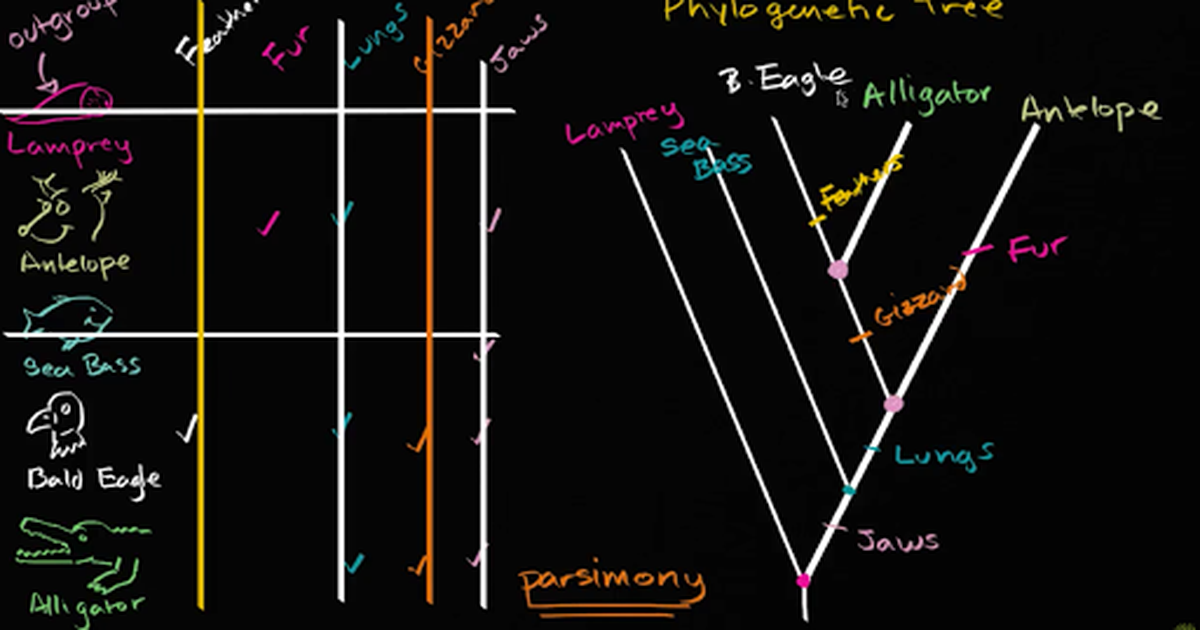 outgroup
Feather
Fur
Lungs
Gizzar
Jaws
Lamprey
Antelope
Sea Bass
Bald Eagle
Alligator
parsimony
Phylogenetic Tree
Lamprey
Sea
Bass
B. Eagle
Alligator
Antelope
Feathers
Fur
Gizzard
Lungs
Jaws